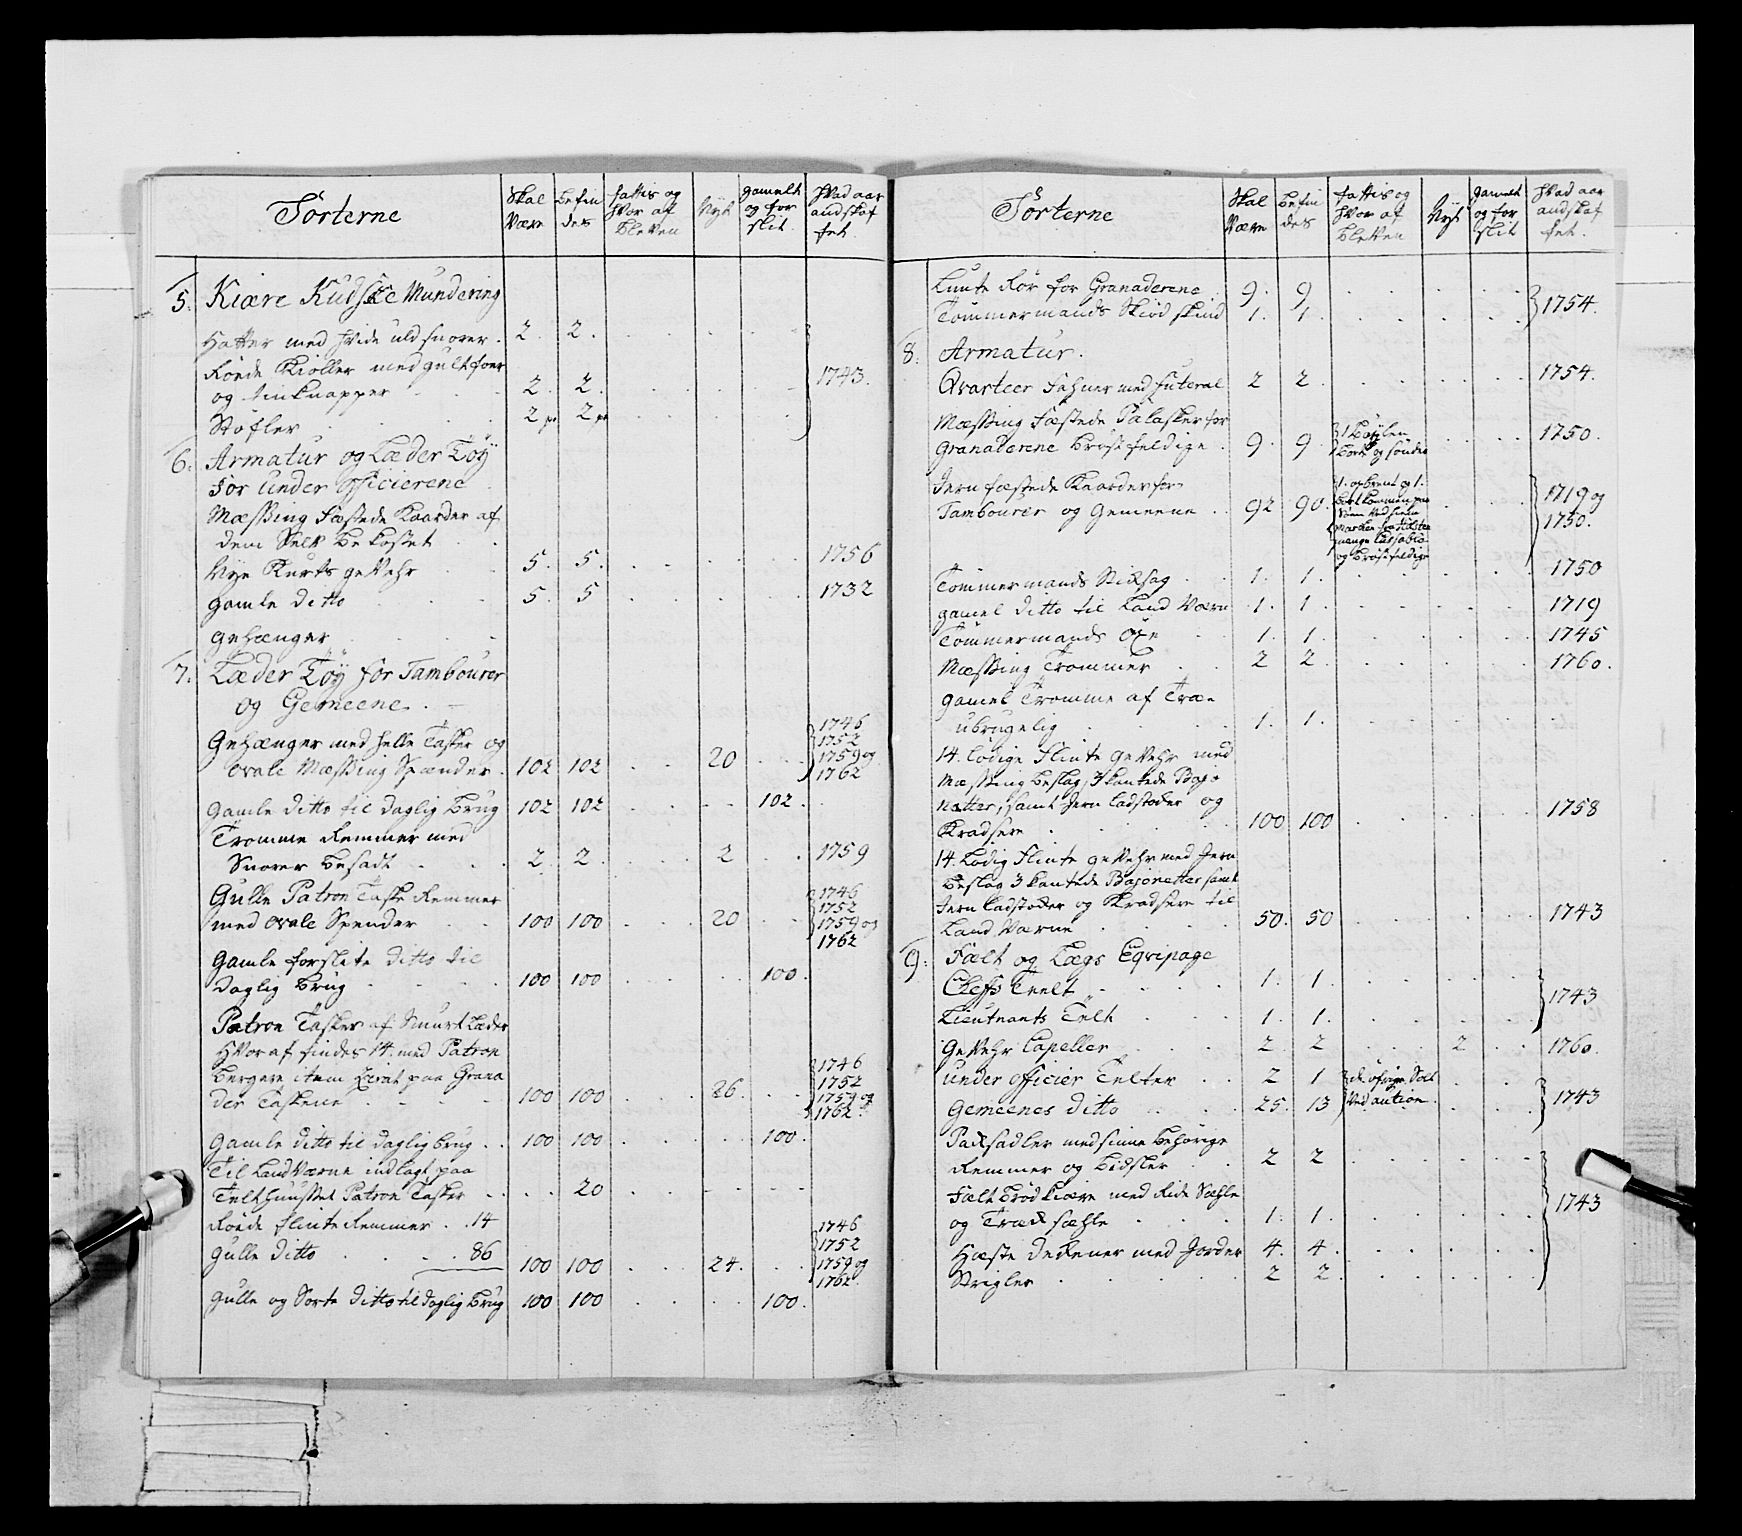 Sorterne | Skal Være | befin des | fattis og hvor af bleven | Nyt | gamelt og for slit | Hvad aar andskaf fet
5. Kiøre Kudske Mundering
Hatter med hvide uld snorer . 2 . 2 .
Røede Kiøller med gult foer
og tinknapper 2 . 2 . 1743.
Støfler 2 pr 2 pr
6. Armatur og Læder Töy
for under officierene
Mæssing Fæstede Kaarder af
dem Selv Bekostet
Nye Kurts geVehr 5. 5. 1756
gamle ditto 5. 5 1732
gehænger
7. Læder Töy for Tambourer
og Gemeene.
Gehænger med helle Tasker og
ovale Mæssing Spænder . 102 102 20 1746 1752 1759 og 1762
gamle ditto til daglig brug 102 102 102
Tromme Remmer med
Snorer besadt 2. 2. 2 1759
Gulle Patron Taske Remmer
med ovale Spender 100 100 20 1746 1752 1759 og 1762
gamle forslite ditto til
daglig brug 100 100 100.
Patron Tasker af Smurt Læder
hvoraf findes 14. med Patron
bergere item Zirat paa Grana
der Taskene 100 100 26 1746 1752 1759 og 1762
gamle ditto til daglig brug 100 100 100.
Til Land Værne indlagt paa
Telthuusset Patron Tasker 20
Røede flinte Remmer . . 14
gulle ditto 86 100 100 24. 1746 1752 1759 og 1762
gulle og Sorte ditto til daglig brug 100 100 100.
Sorterne | Skal Være | befin des | fattis og hvor af bleven | Nyt | gamelt og for slit | Hvad aar andskaf fet.
Lunte Rör for Granaderene 9. 9
Tømmermands Skiød skind 1. 1. 1754.
8. Armatur.
Qvarteer Fahner med futeral 2 2 1754.
Mæssing Fæstede Palasker for
Granaderene brøstfeldige . 9. 9. 1 bøylen bort og sönder 1750.
Jern fæstede Kaarder for
Tambourer og Gemeene . 92 90. 1719 og 1750.
Tømmermands Stiksag 1. 1. 1750
gamel ditto til Land Værn 1. 1. 1719
Tømmermands Öxe 1. 1. 1745
Mæssing Trommer 2 2. 1760.
gamel Tromme af Træ
ubrugelig 1. 1.
14. lødige Flinte geVehr med
Mæssing beslag, 3 kantede Bajo
netter, samt Jern ladstoker og
Kradsere 100 100 1758
14. Lödig Flinte geVehr med Jern
beslag 3 kantede Bajonetter samt
Jern ladstoker og Kradsere til
Land Værne 50. 50 1743
9. Fælt og Lægs Eqvipage
Chefs Teelt 1. 1.
Lieutnants Telt 1. 1. 1743
GeVehr Capeller 2 2 2 1760.
Under officier Telter 2 1 de øfrige Solt
Gemeenes ditto 25. 13 ved aution. 1743
Paksadler med sinne behørige
Remmer og bidsler 2 2
Fælt brød kiære med Ride Sæhle
og Træk sæhle 1. 1. 1743
Hæste dekener med Jorder 4. 4.
Strigler 2 2